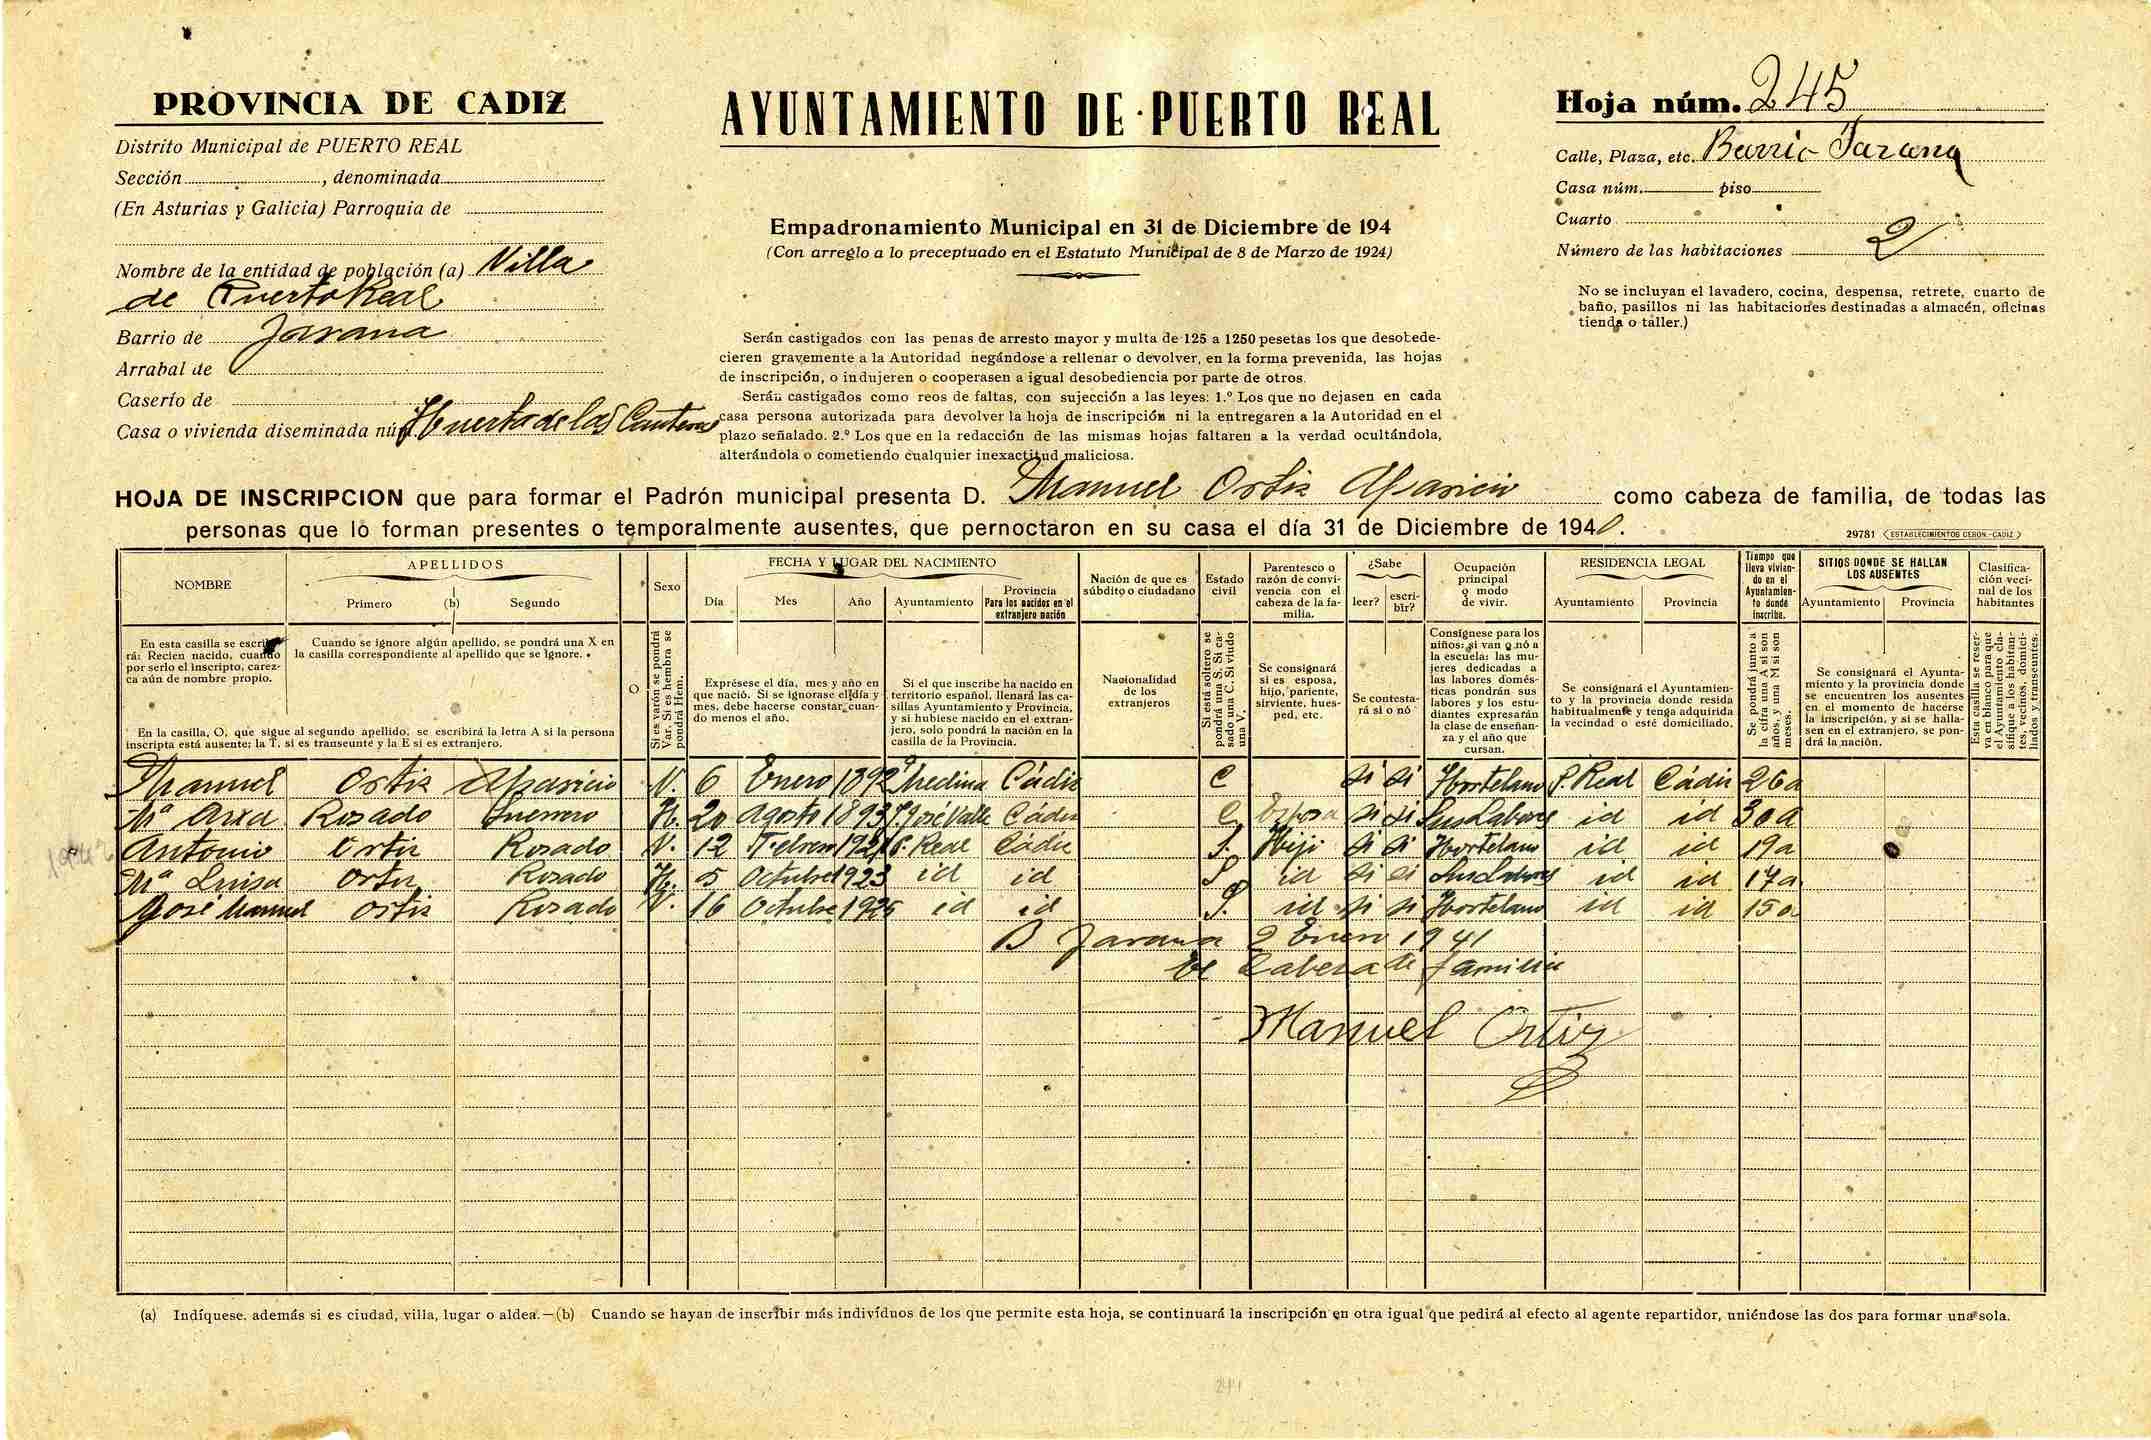 PROVINCIA DE CADIZ
Distrito Municipal de PUERTO REAL
Sección , denominada
(En Asturias y Galicia) Parroquia de
Nombre de la entidad de población (a) Villa
de Puerto Real
Barrio de Jarana
Arrabal de
Caserío de
Casa o vivienda diseminada núm. Huerta de las Canteras
AYUNTAMIENTO DE PUERTO REAL
Empadronamiento Municipal en 31 de Diciembre de 194
(Con arreglo a lo preceptuado en el Estatuto Municipal de 8 de Marzo de 1924)
Serán castigados con las penas de arresto mayor y multa de 125 a 1250 pesetas los que desobede-
cieren gravemente a la Autoridad negándose a rellenar o devolver, en la forma prevenida, las hojas
de inscripción, o indujeren o cooperasen a igual desobediencia por parte de otros.
Serán castigados como reos de faltas, con sujección a las leyes: 1.º Los que no dejasen en cada
casa persona autorizada para devolver la hoja de inscripción ni la entregaren a la Autoridad en el
plazo señalado. 2.º Los que en la redacción de las mismas hojas faltaren a la verdad ocultándola,
alterándola o cometiendo cualquier inexactitud maliciosa.
Hoja núm. 245
Calle, Plaza, etc. Barrio Jarana
Casa núm. piso
Cuarto
Número de las habitaciones 2
No se incluyan el lavadero, cocina, despensa, retrete, cuarto de
baño, pasillos ni las habitaciones destinadas a almacén, oficinas
tienda o taller.)
HOJA DE INSCRIPCION que para formar el Padrón municipal presenta D. Manuel Ortiz Aparicio como cabeza de familia, de todas las
personas que lo forman presentes o temporalmente ausentes, que pernoctaron en su casa el día 31 de Diciembre de 1940.
29781 (ESTABLECIMIENTOS CERON.-CADIZ)
NOMBRE
APELLIDOS
Primero (b) Segundo
O
Sexo
FECHA Y LUGAR DEL NACIMIENTO
Día Mes Año Ayuntamiento
Provincia
Para los nacidos en el
extranjero nación
Nación de que es
súbdito o ciudadano
Estado
civil
Parentesco o
razón de convi-
vencia con el
cabeza de la fa-
milia.
¿Sabe
leer? escri-
bir?
Ocupación
principal
o modo
de vivir.
RESIDENCIA LEGAL
Ayuntamiento Provincia
Tiempo que
lleva vivien-
do en el
Ayuntamien-
to donde
inscribe.
SITIOS DONDE SE HALLAN
LOS AUSENTES
Ayuntamiento Provincia
Clasifica-
ción veci-
nal de los
habitantes
En esta casilla se escribi-
rá: Recien nacido, cuando
por serlo el inscripto, carez-
ca aún de nombre propio.
Cuando se ignore algún apellido, se pondrá una X en
la casilla correspondiente al apellido que se ignore.
En la casilla, O, que sigue al segundo apellido, se escribirá la letra A si la persona
inscripta está ausente; la T, si es transeunte y la E si es extranjero.
Si es varón se pondrá
Var. Si es hembra se
pondrá Hem.
Exprésese el día, mes y año en
que nació. Si se ignorase el día y
mes, debe hacerse constar cuan-
do menos el año.
Si el que inscribe ha nacido en
territorio español, llenará las ca-
sillas Ayuntamiento y Provincia,
y si hubiese nacido en el extran-
jero, solo pondrá la nación en la
casilla de la Provincia.
Nacionalidad
de los
extranjeros
Si está soltero se
pondrá una S. Si ca-
sado una C. Si viudo
una V.
Se consignará
si es esposa,
hijo, pariente,
sirviente, hues-
ped, etc.
Se contesta-
rá sí o nó
Consígnese para los
niños: si van o nó a
la escuela: las mu-
jeres dedicadas a
las labores domés-
ticas pondrán sus
labores y los estu-
diantes expresarán
la clase de enseñan-
za y el año que
cursan.
Se consignará el Ayuntamien-
to y la provincia donde resida
habitualmente y tenga adquirida
la vecindad o esté domiciliado.
Se pondrá junto a
la cifra una A si son
años, y una M si son
meses.
Se consignará el Ayunta-
miento y la provincia donde
se encuentren los ausentes
en el momento de hacerse
la inscripción, y si se halla-
sen en el extranjero, se pon-
drá la nación.
Esta casilla se reser-
va en blanco para que
el Ayuntamiento cla-
sifique a los habitan-
tes, vecinos, domici-
liados y transeuntes.
Manuel Ortiz Aparicio V. 6 Enero 1892 Medina Cádiz C si si Hortelano P. Real Cádiz 26a
Mª Rosado Guerrero H. 20 Agosto 1893 S. José Valle Cádiz C Esposa si si Sus Labores id id 30a
Antonio Ortiz Rosado V. 12 Febrero 1921 P. Real Cádiz S. Hijo si si Hortelano id id 19a
Mª Luisa Ortiz Rosado H. 5 Octubre 1923 id id S. id si si Sus Labores id id 17a
José Manuel Ortiz Rosado V. 16 Octubre 1925 id id S. id si si Hortelano id id 15a
B Jarana 2 Enero 1941
El Cabeza de familia
Manuel Ortiz
(a) Indíquese. además si es ciudad, villa, lugar o aldea.—(b) Cuando se hayan de inscribir más individuos de los que permite esta hoja, se continuará la inscripción en otra igual que pedirá al efecto al agente repartidor, uniéndose las dos para formar una sola.
244